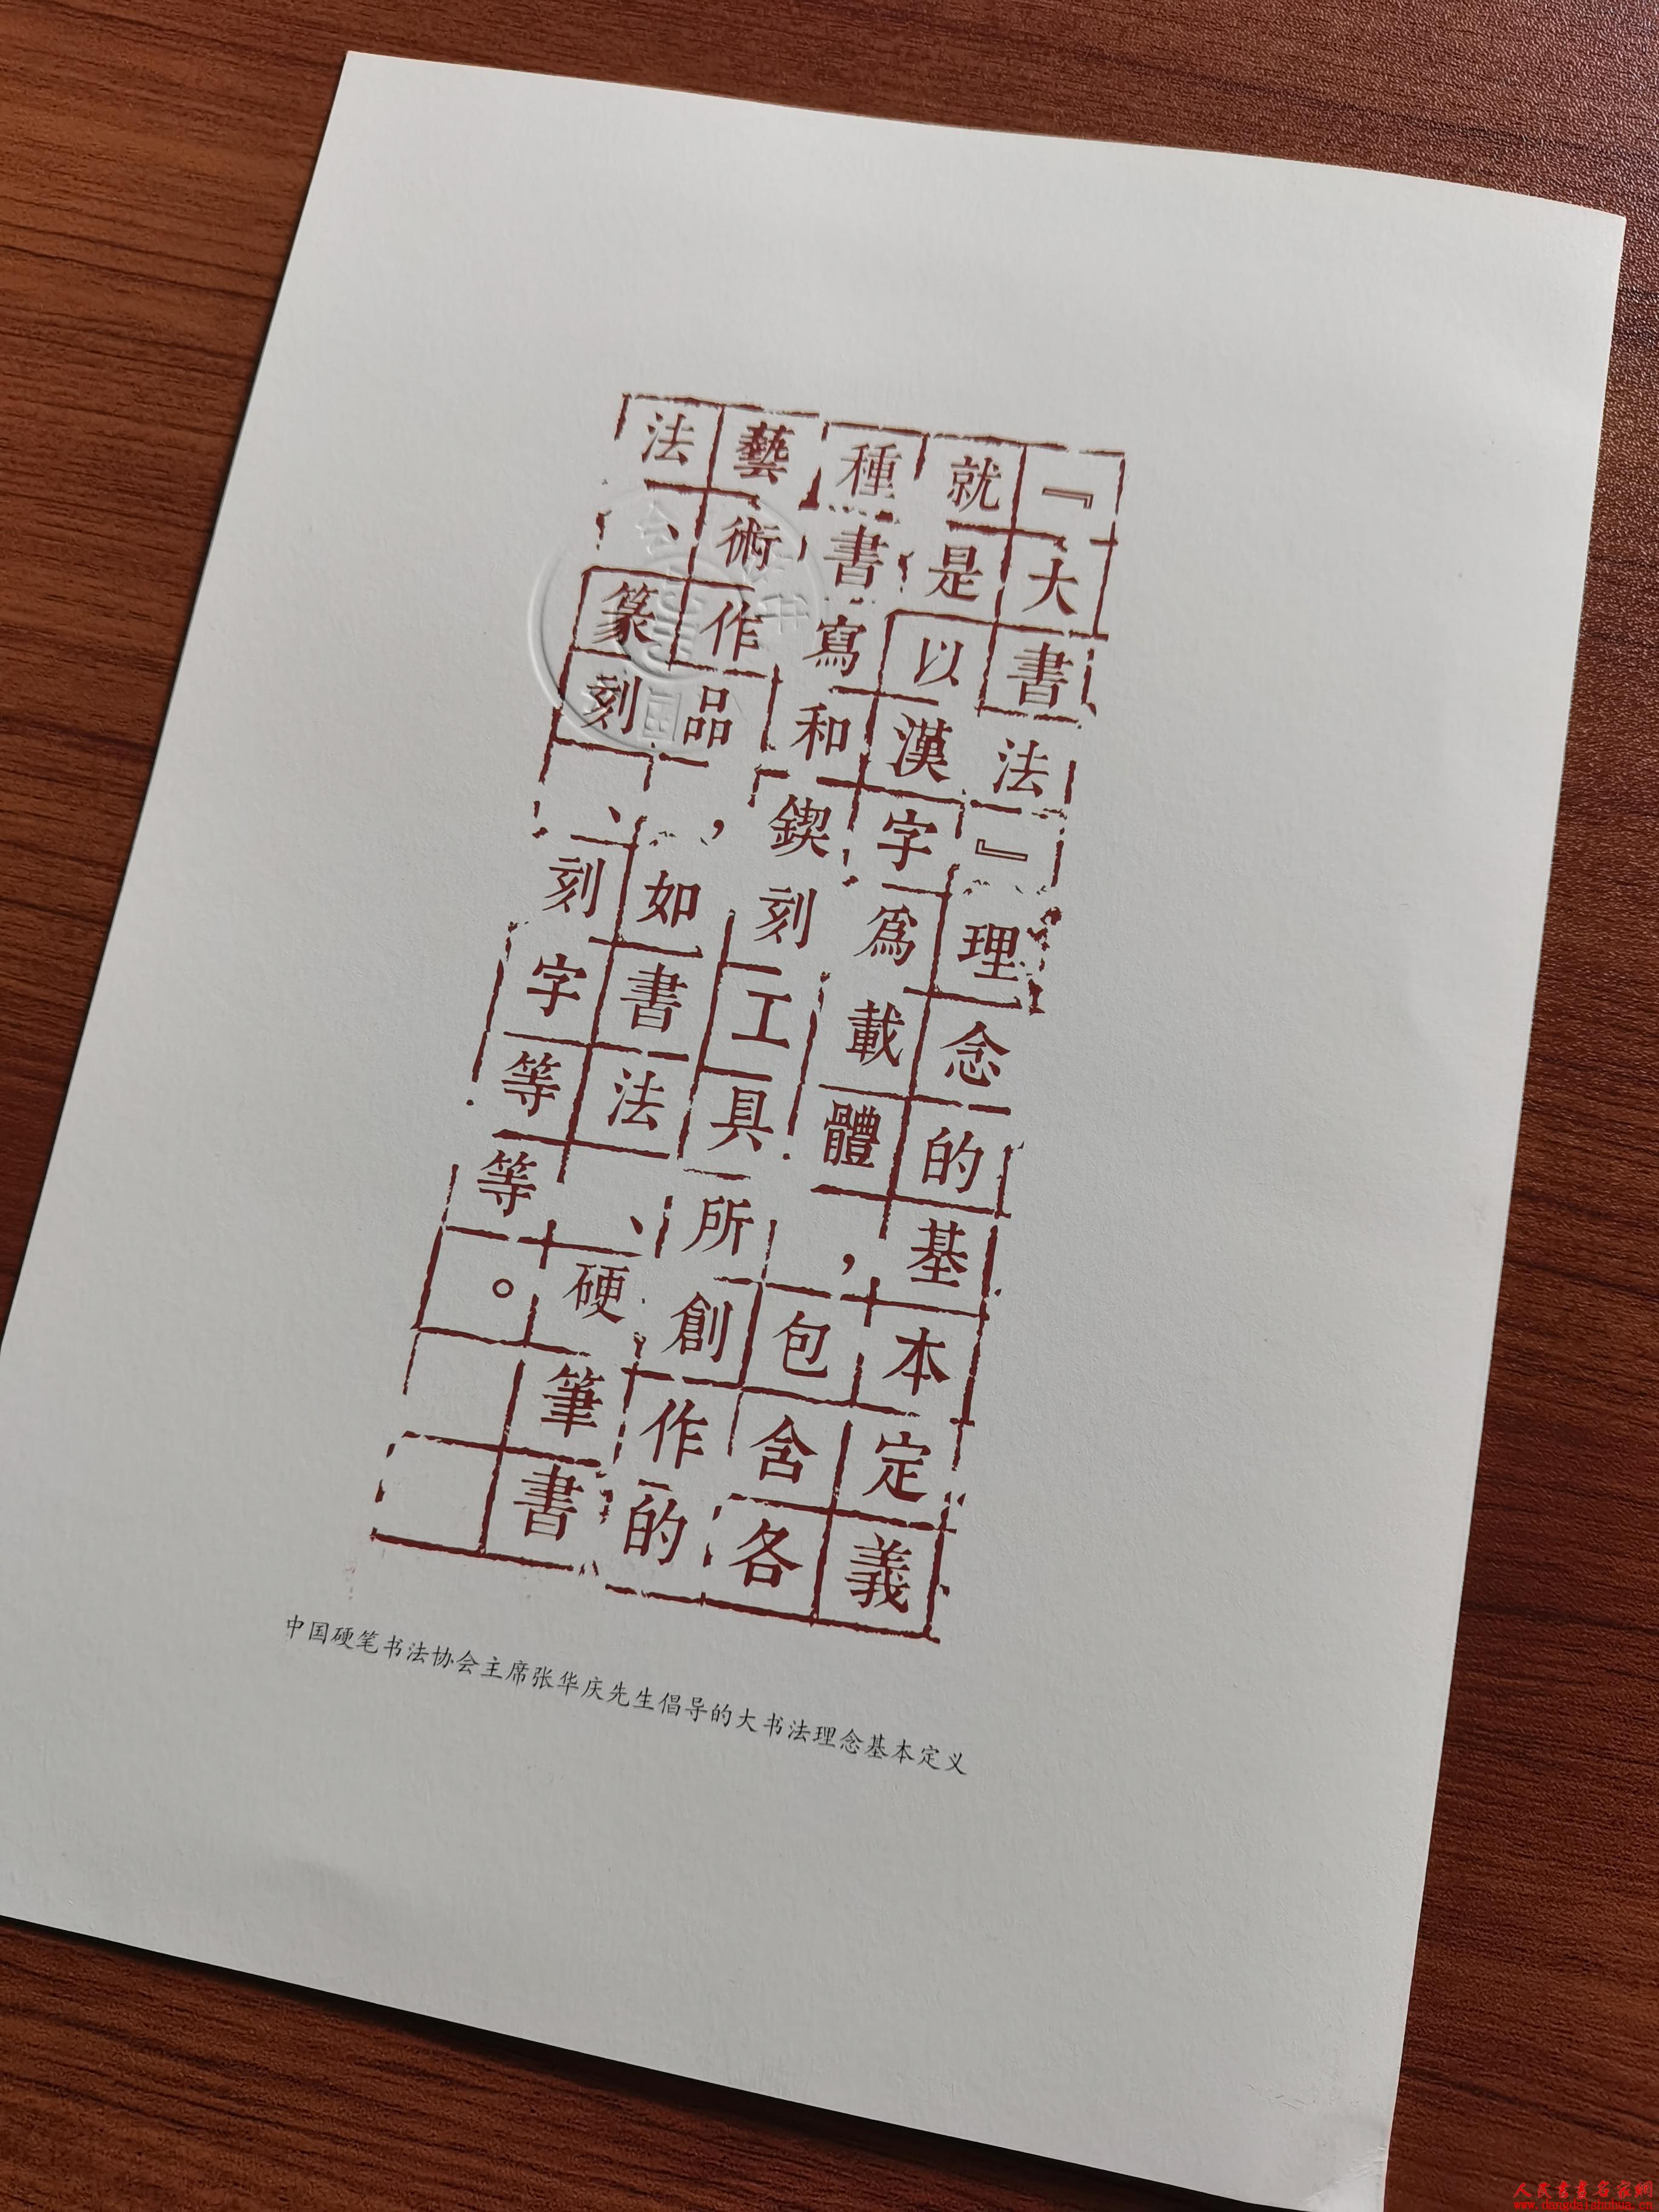 『大書法』理念的基本定義
就是以漢字爲載體，包含各
種書寫和鍥刻工具所創作的
藝術作品，如書法、硬筆書
法、篆刻、刻字等等。
中国硬笔书法协会主席张华庆先生倡导的大书法理念基本定义
人民書畫名家網
www.dangdaishuhua.cn